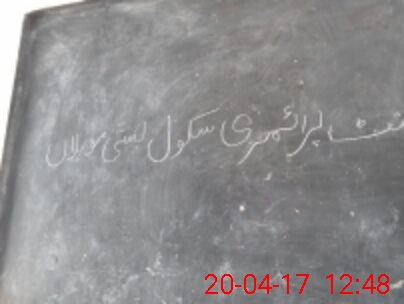 پرائمری سکول بستی موہلاں
20-04-17 12:48